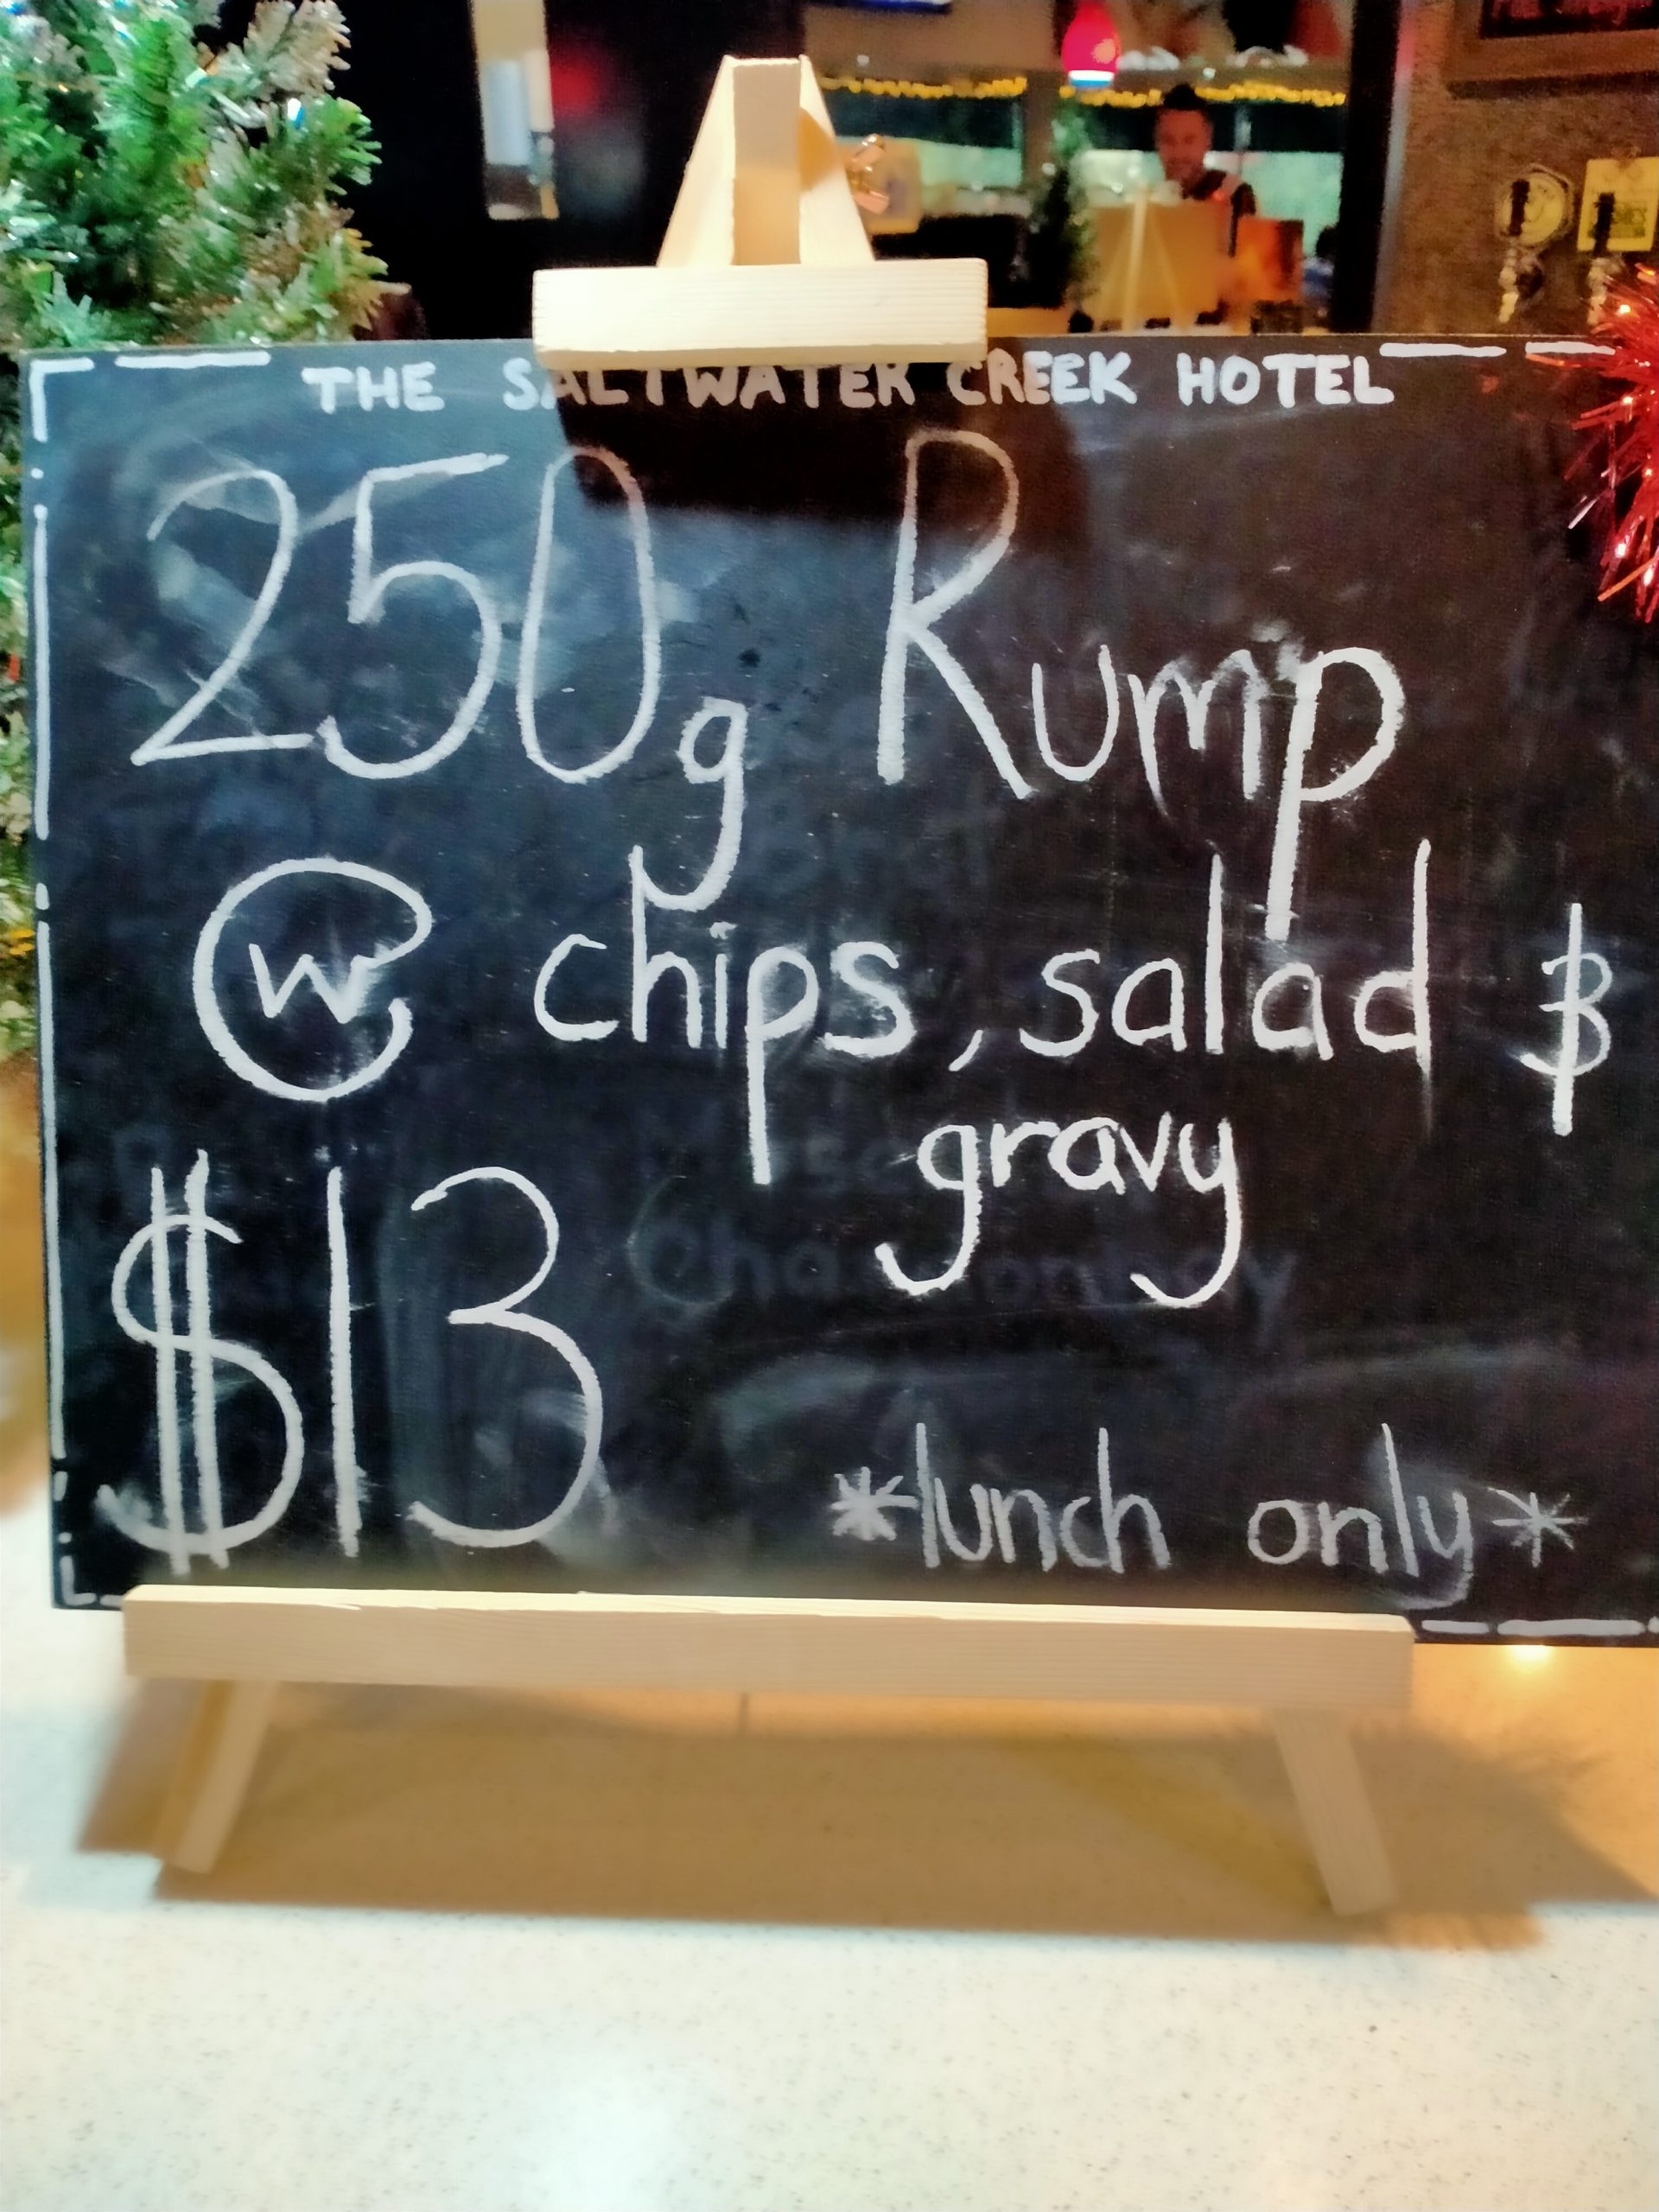 THE SALTWATER CREEK HOTEL
250g Rump
w chips, salad $
gravy
$13
*lunch only*